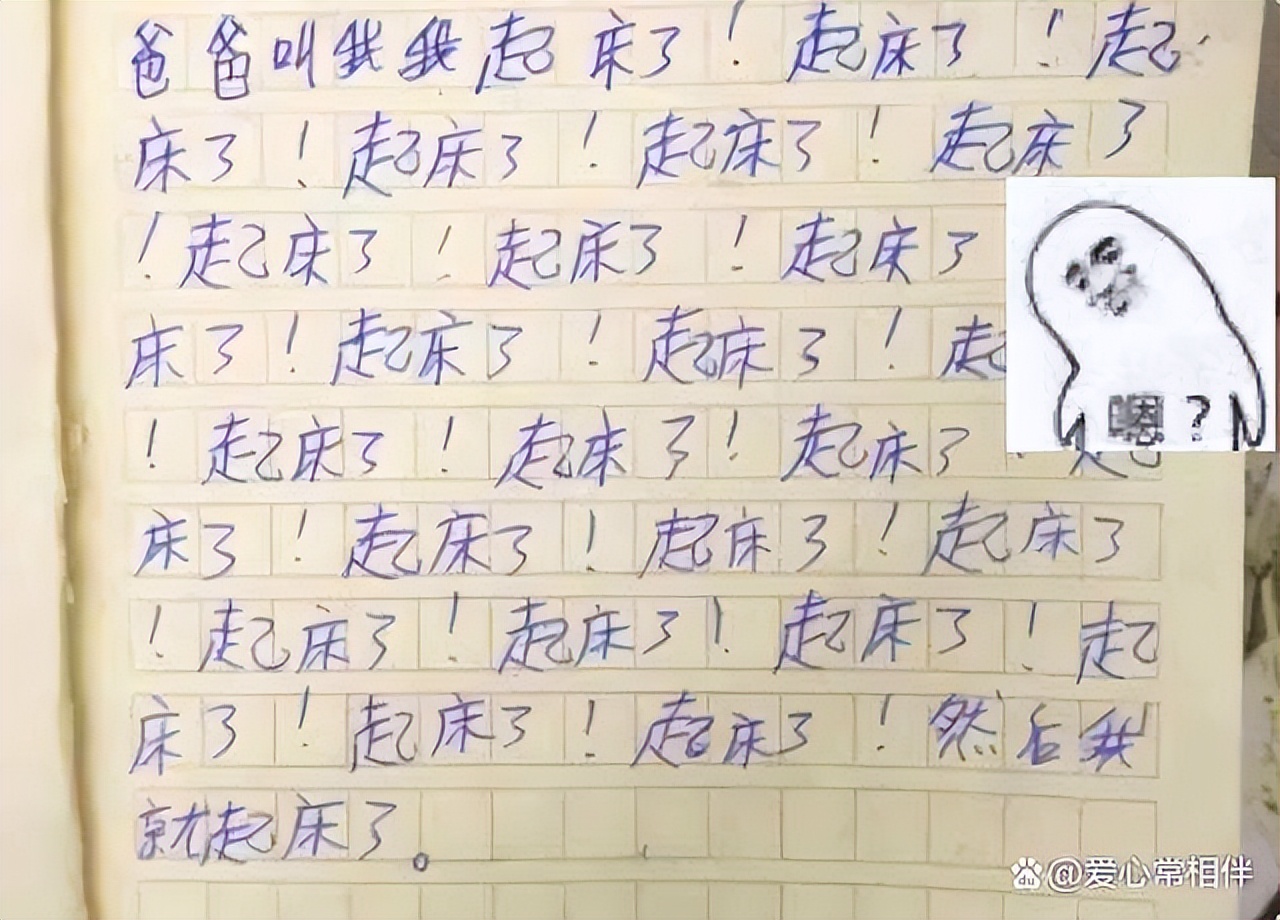 爸爸叫我我起床了！起床了！起
床了！起床了！起床了！起床了
！起床了！起床了！起床了
床了！起床了！起床了！起
！起床了！起床了！起床了
床了！起床了！起床了！起床了
！起床了！起床了！起床了！起
床了！起床了！起床了！然后我
就起床了。
嗯？
du @爱心常相伴